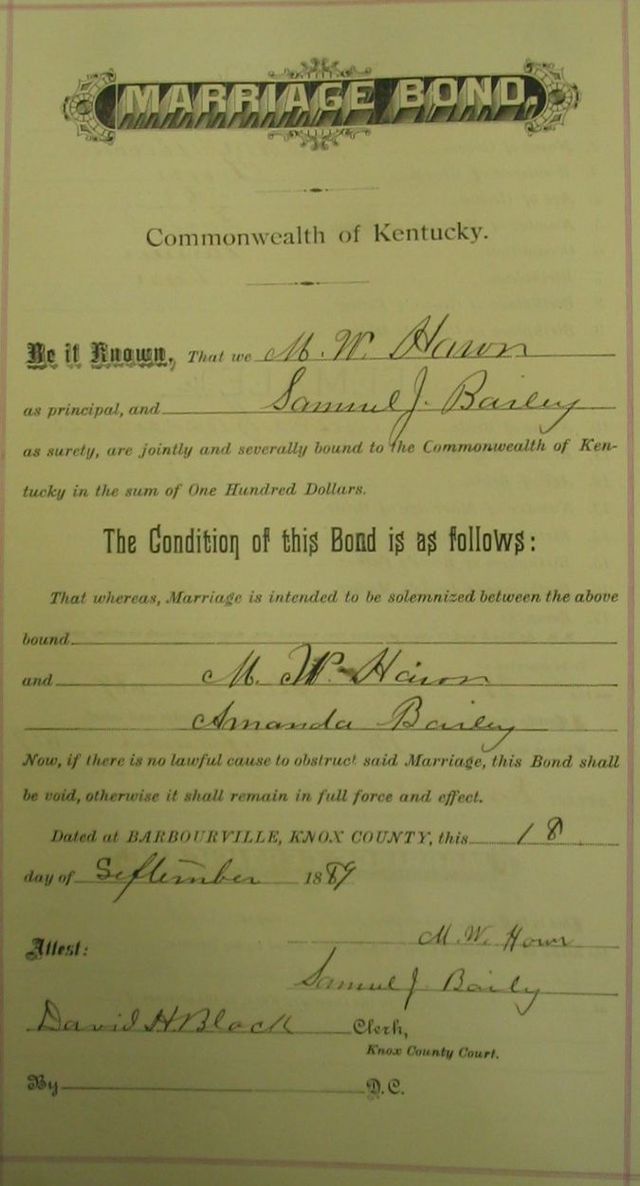 MARRIAGE BOND,
Commonwealth of Kentucky.
Be it Known, That we M. W. Hawn
as principal, and Samuel J. Bailey
as surety, are jointly and severally bound to the Commonwealth of Ken-
tucky in the sum of One Hundred Dollars.
The Condition of this Bond is as follows:
That whereas, Marriage is intended to be solemnized between the above
bound
and M. W. Hawn
Amanda Bailey
Now, if there is no lawful cause to obstruct said Marriage, this Bond shall
be void, otherwise it shall remain in full force and effect.
Dated at BARBOURVILLE, KNOX COUNTY, this 18
day of September 1889
Attest: M. W.
Samuel J. Baily
David H Black Clerk,
Knox County Court.
By D.C.